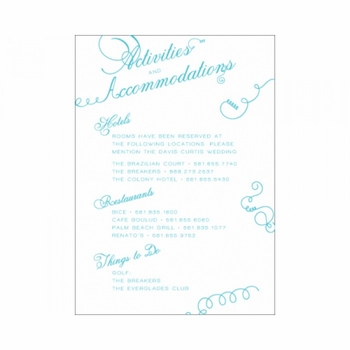 Activities
AND
Accommodations
Hotels
ROOMS HAVE BEEN RESERVED AT
THE FOLLOWING LOCATIONS. PLEASE
MENTION THE DAVIS-CURTIS WEDDING
THE BRAZILIAN COURT - 561 655 7740
THE BREAKERS - 888 273 2537
THE COLONY HOTEL - 561 655 5430
Restaurants
BICE - 561 835 1600
CAFE BOULUD - 561 655 6060
PALM BEACH GRILL - 561 835 1077
RENATO'S - 561 655 9752
Things to Do
GOLF:
THE BREAKERS
THE EVERGLADES CLUB